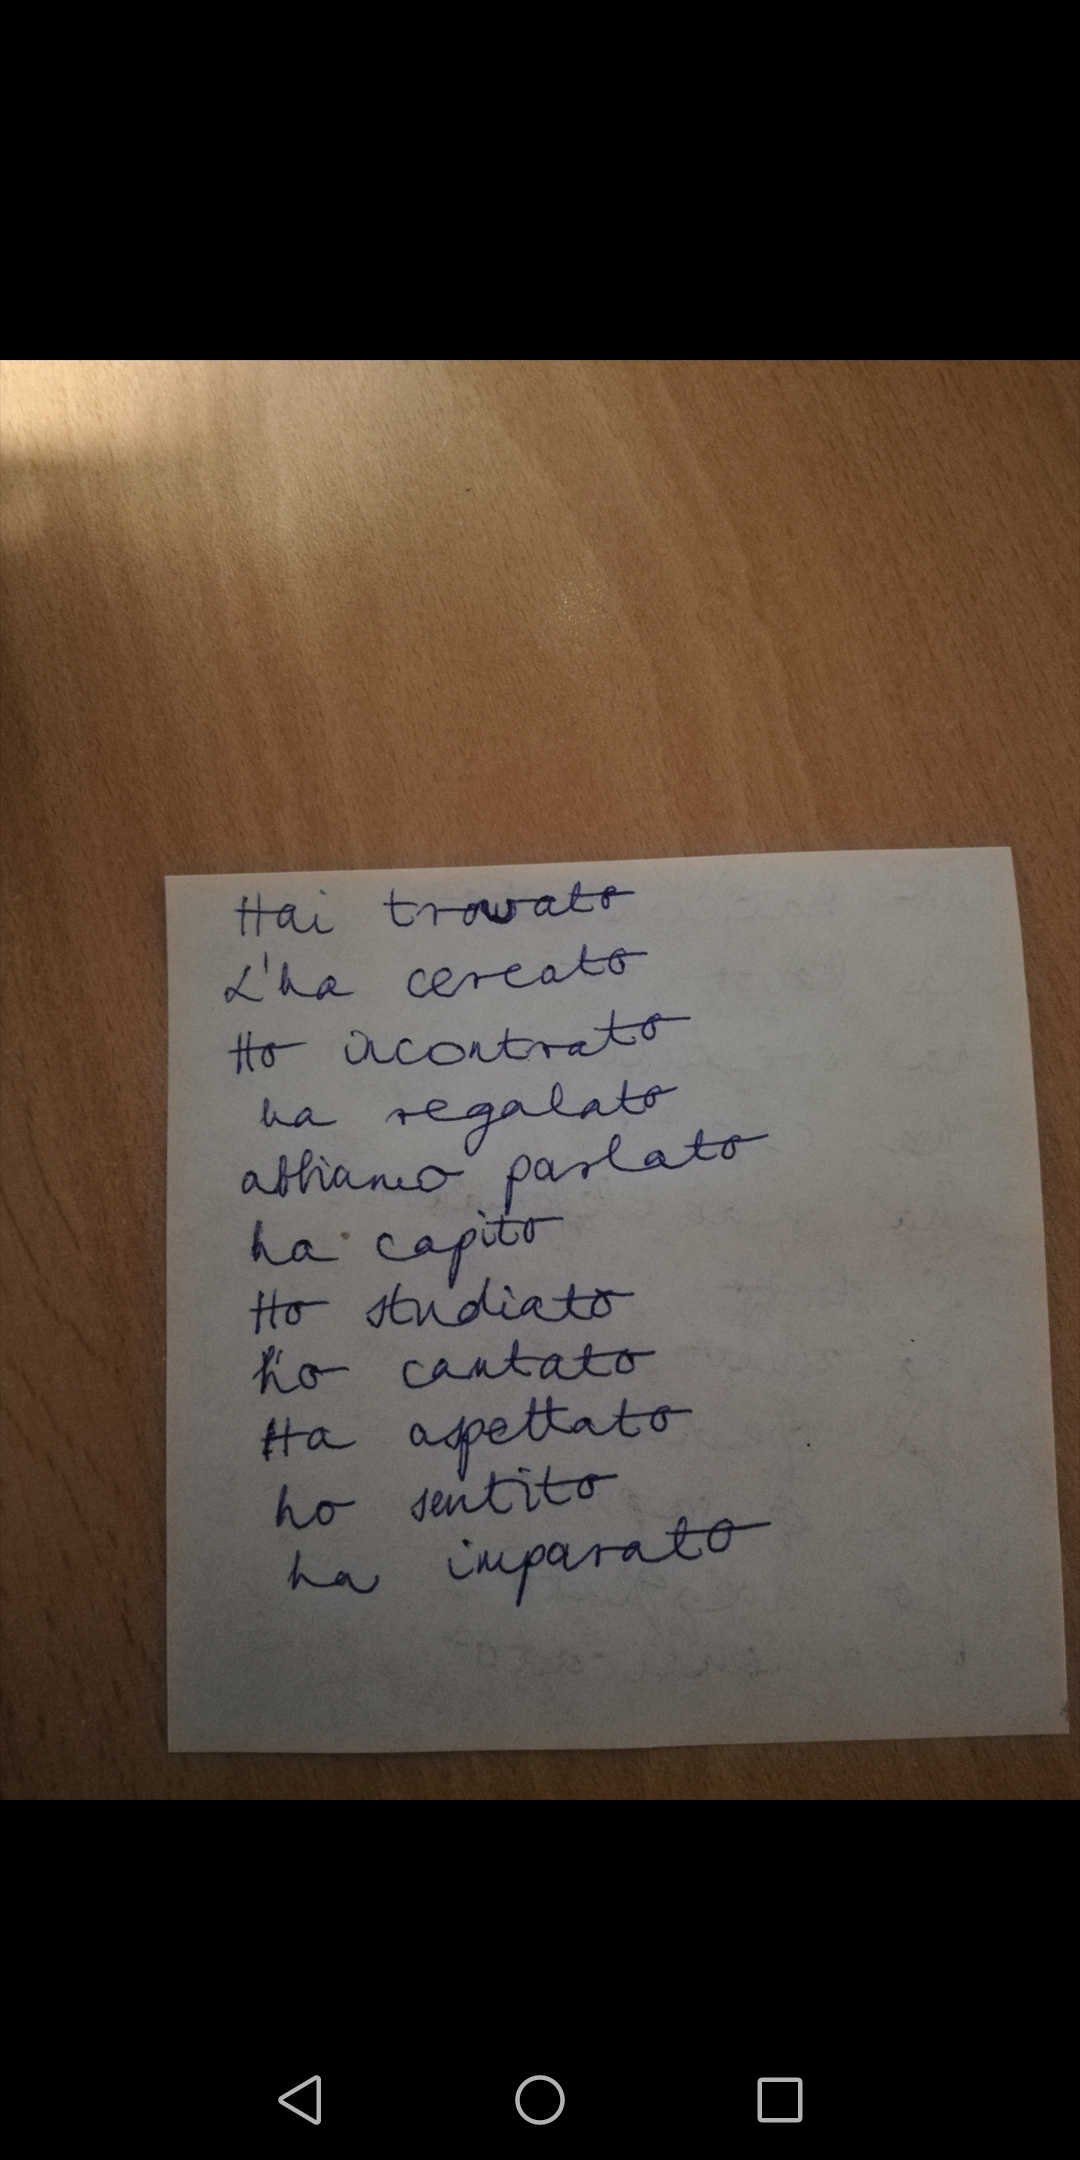 Hai trovato
L'ha cercato
Ho incontrato
ha regalato
abbiamo parlato
ha capito
Ho studiato
ho cantato
Ha aspettato
ho sentito
ha imparato